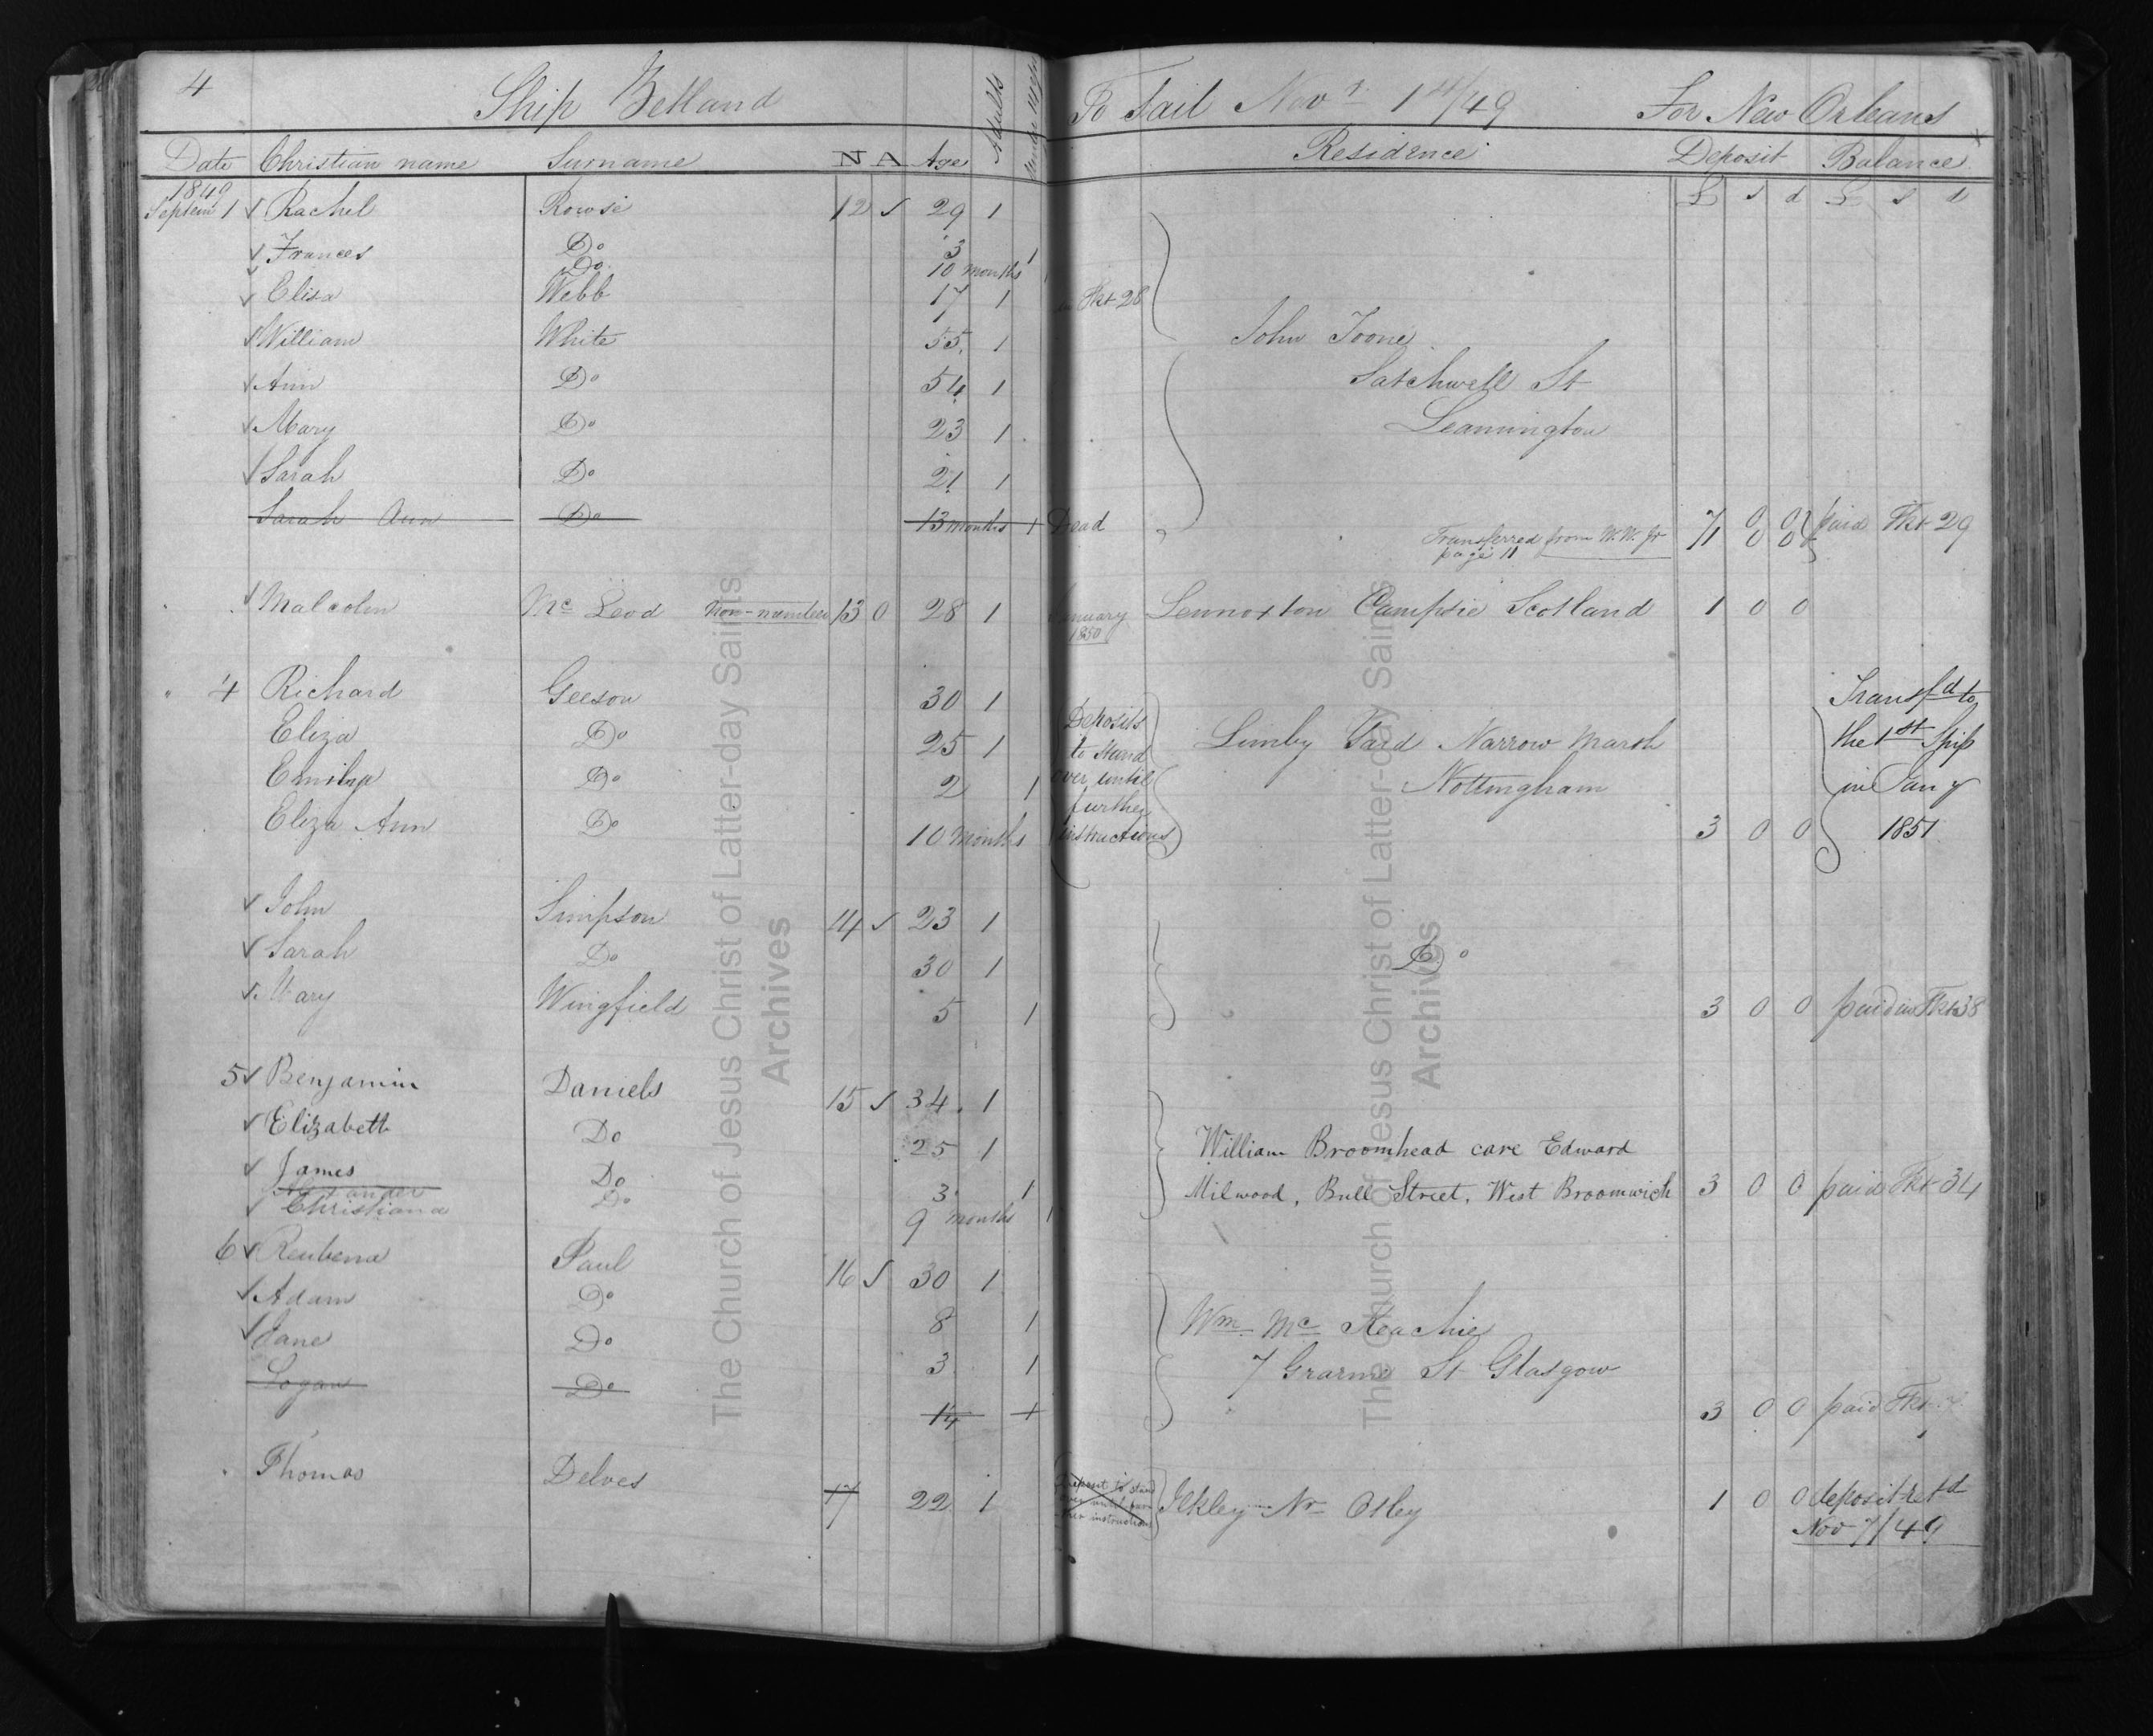 4 Ship Zetland To Sail Novr 1st/49 For New Orleans
Date Christian name Surname N A Age Adults Residence Deposit Balance
£ s d £ s d
1849
Septem 1 Rachel Rowse 12 ✓ 29 1
Frances Do 3 1
Do 10 months 1
Elisa Webb 17 1 Tkt 28
William White 55 1 John Toone
Ann Do 54 1 Satchwell St
Mary Do 23 1 Leamington
Sarah Do 21 1
Sarah Ann Do 13 months 1 Dead 7 0 0 paid Tkt 29
Transferred from W.W. Jr 1 0 0
page 11
Malcolm Mc Leod Non-member 13 0 28 1 January 1850 Lennoxton Campsie Scotland 1 0 0
" 4 Richard Geeson 30 1 Deposits to stand over until further instructions Transfd to
Eliza Do 25 1 Limby Yard Narrow Marsh the 1st Ship
Emily Do 2 1 Nottingham in Jany
Eliza Ann Do 10 months 3 0 0 1851
John Simpson 14 ✓ 23 1
Sarah Do 30 1 Do
Mary Wingfield 5 1 3 0 0 paid in Tkt 38
5 Benjamin Daniels 15 ✓ 34 1
Elizabeth Do 25 1 William Broomhead care Edward
James Do 3 1 Milwood, Bull Street, West Bromwich 3 0 0 paid Tkt 34
Alexander
Christiana Do 9 months 1
6 Reubena Paul 16 ✓ 30 1
Adam Do 8 1 Wm Mc Keachie
Jane Do 3 1 7 Grarme St Glasgow
Logan Do 14 1 3 0 0 paid Tkt
Thomas Delves 17 22 1 Deposit to stand over until further instructions Ilkley Nr Otley 1 0 0 deposit retd
Nov 7/49
The Church of Jesus Christ of Latter-day Saints
Archives
The Church of Jesus Christ of Latter-day Saints
Archives